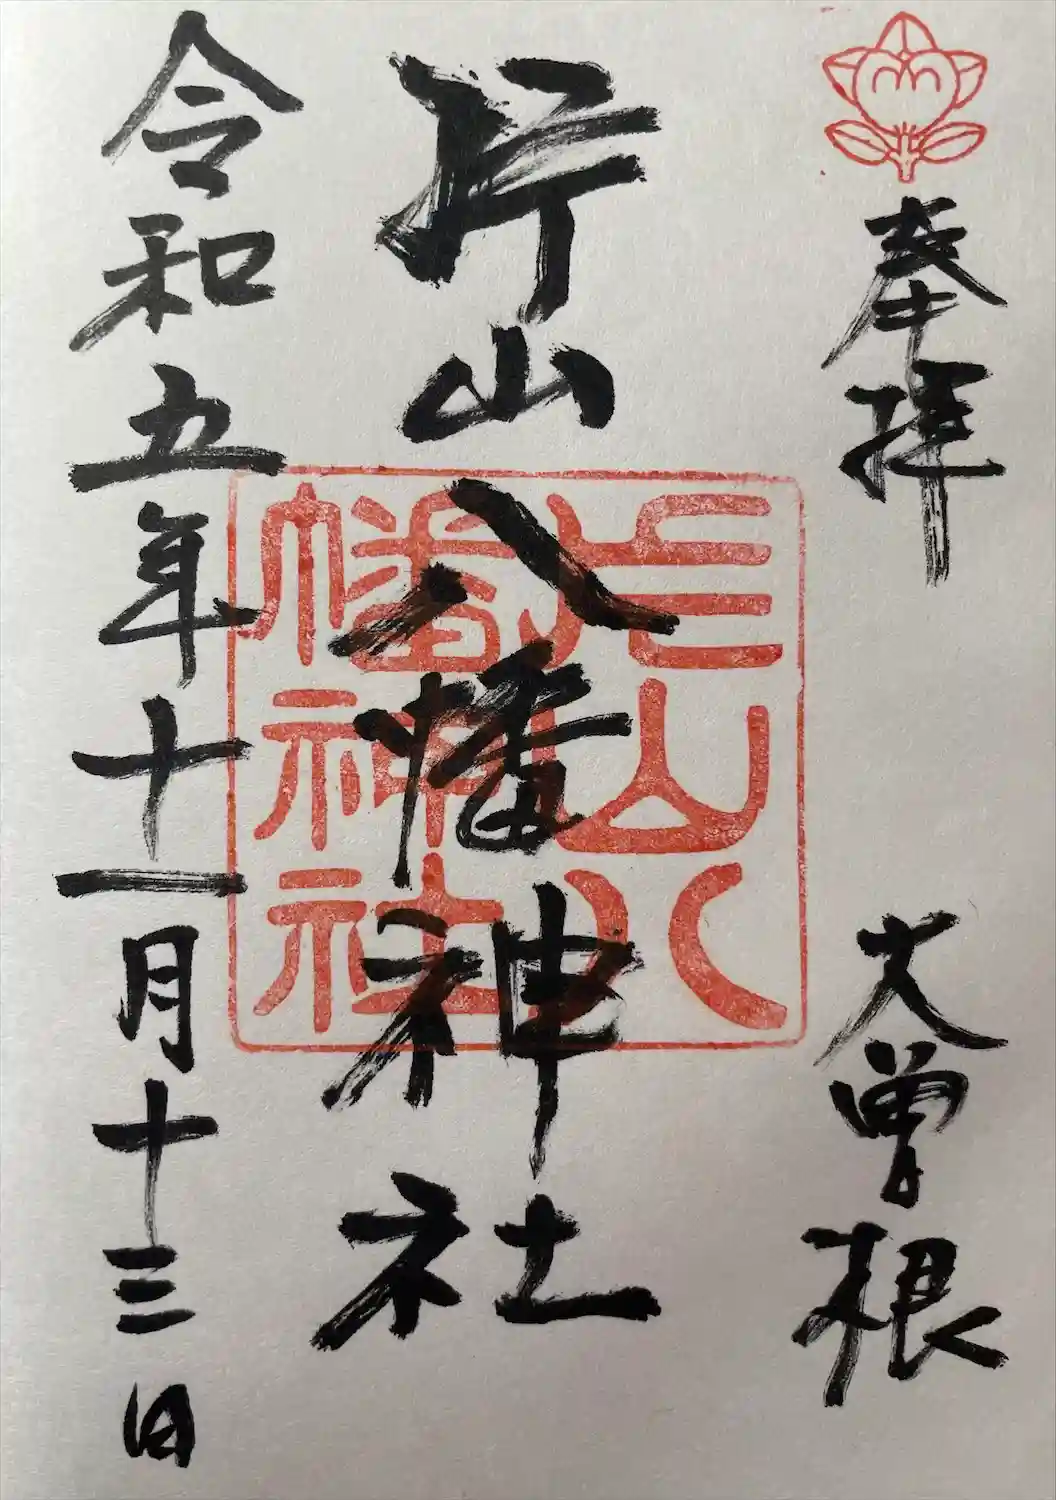 奉拝　大曽根
片山八幡神社
片山八
幡神社
令和五年十一月十三日